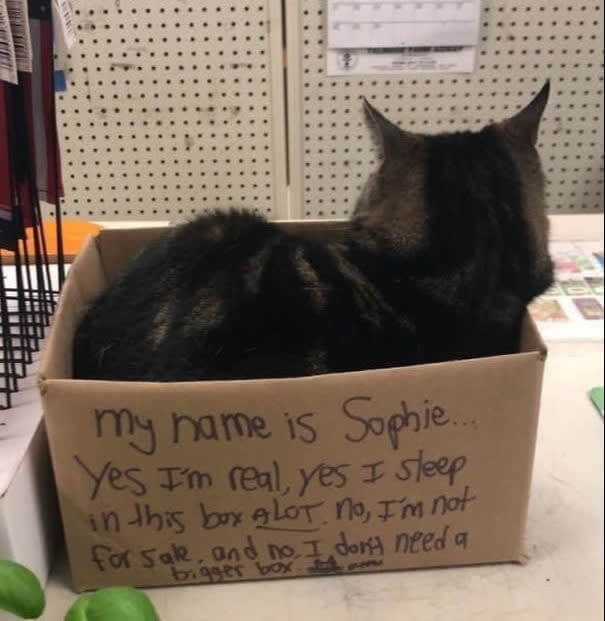 my name is Sophie...
Yes I'm real, yes I sleep
in this box ALOT. No, I'm not
for sale, and no I don't need a
bigger box.